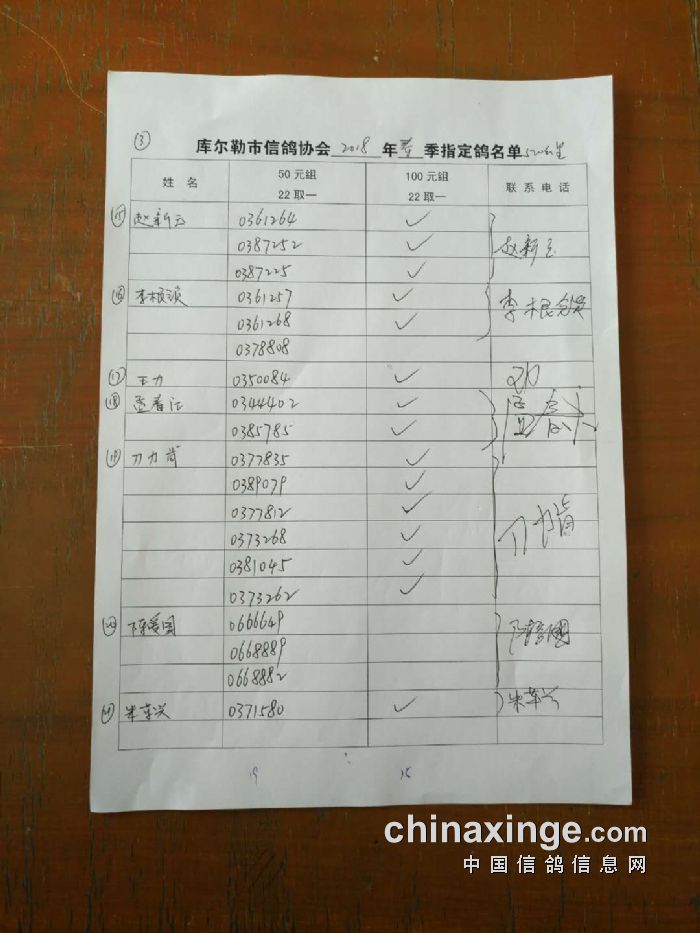 ③
库尔勒市信鸽协会 2018 年 春 季指定鸽名单
姓 名 50元组 22取一 100元组 22取一 联系电话
⑮ 赵新玉 0361264 ✓
0387252 ✓ 赵新玉
0387225 ✓
⑯ 李根 0361257 ✓ 李根
0361268 ✓
0378808
⑰ 王力 0350084 ✓
⑱ 孟春 0344402 ✓ 孟春
0385785 ✓
⑲ 0377835 ✓
0389079 ✓
0377812 ✓
0373268 ✓
0381045 ✓
0373262 ✓
⑳ 陈爱国 0666649
0668889
0668882
㉑ 朱革兴 0371580 ✓ 朱革兴
19 15
chinaxinge.com
中国信鸽信息网